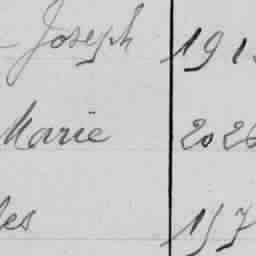 Joseph 191
Marie 2026
es 157